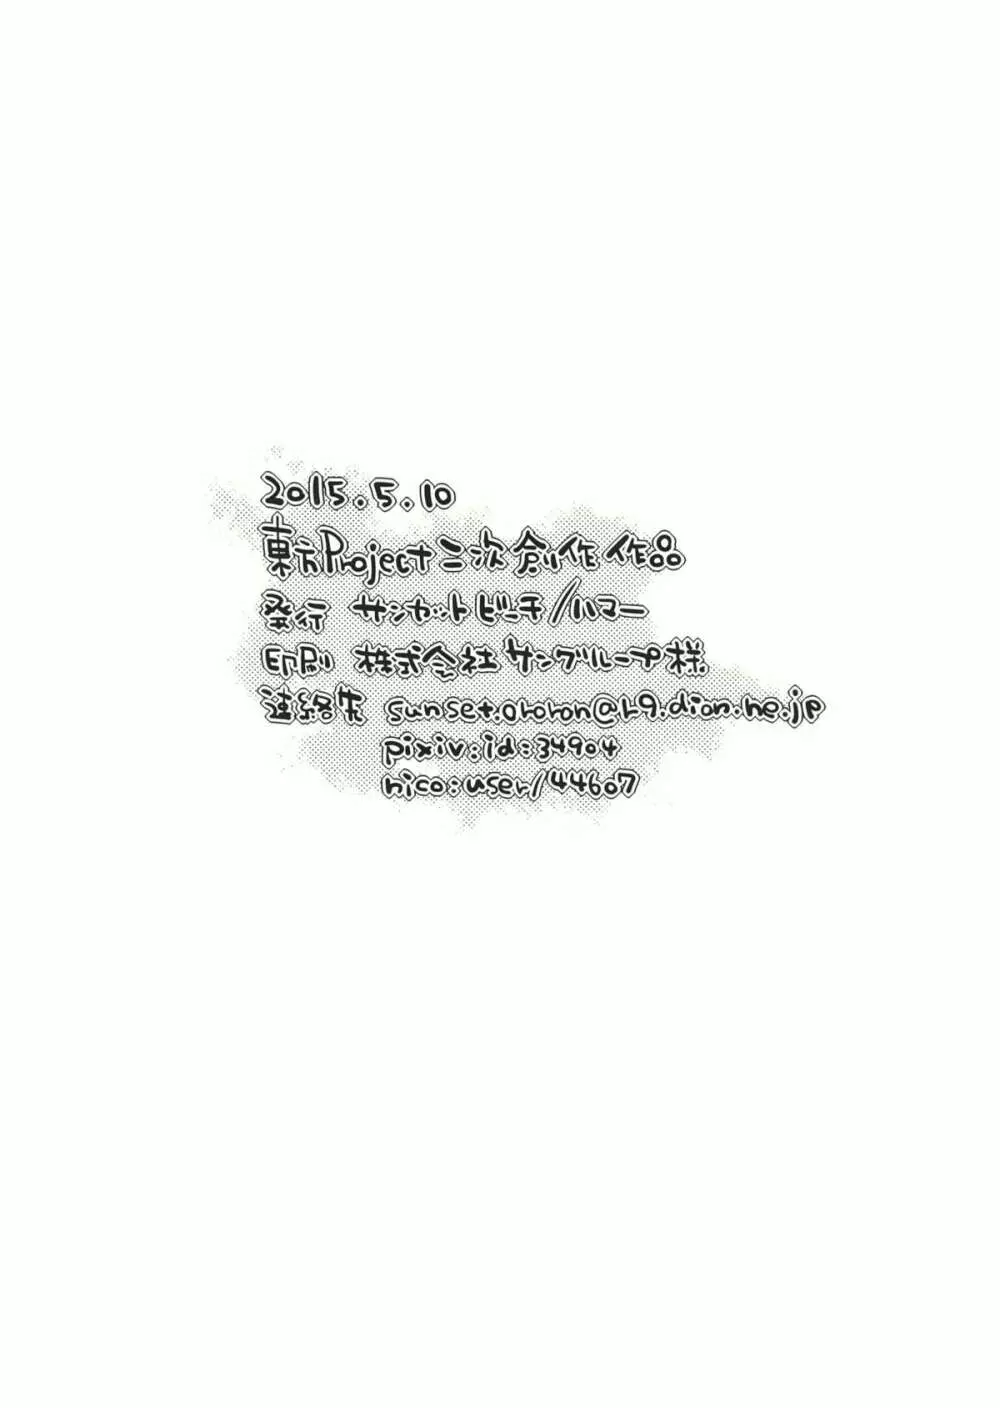 2015.5.10
東方Project二次創作作品
発行 サンセットビーチ/ハマー
印刷 株式会社サングループ様
連絡先 sunset.ororon@k9.dion.ne.jp
pixiv:id:34904
nico:user/44607